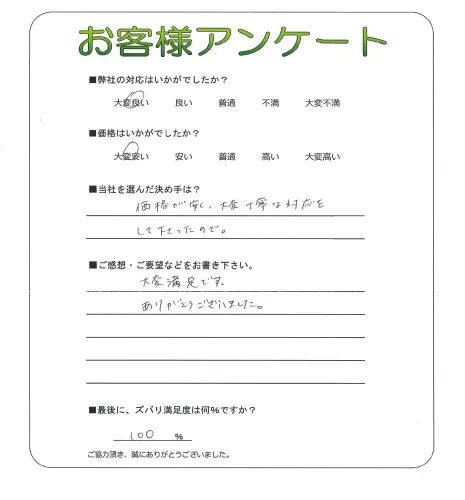 お客様アンケート
■弊社の対応はいかがでしたか？
大変良い 良い 普通 不満 大変不満
■価格はいかがでしたか？
大変安い 安い 普通 高い 大変高い
■当社を選んだ決め手は？
価格が安く、大変丁寧な対応を
して下さったので。
■ご感想・ご要望などをお書き下さい。
大変満足です。
ありがとうございました。
■最後に、ズバリ満足度は何％ですか？
100 ％
ご協力頂き、誠にありがとうございました。